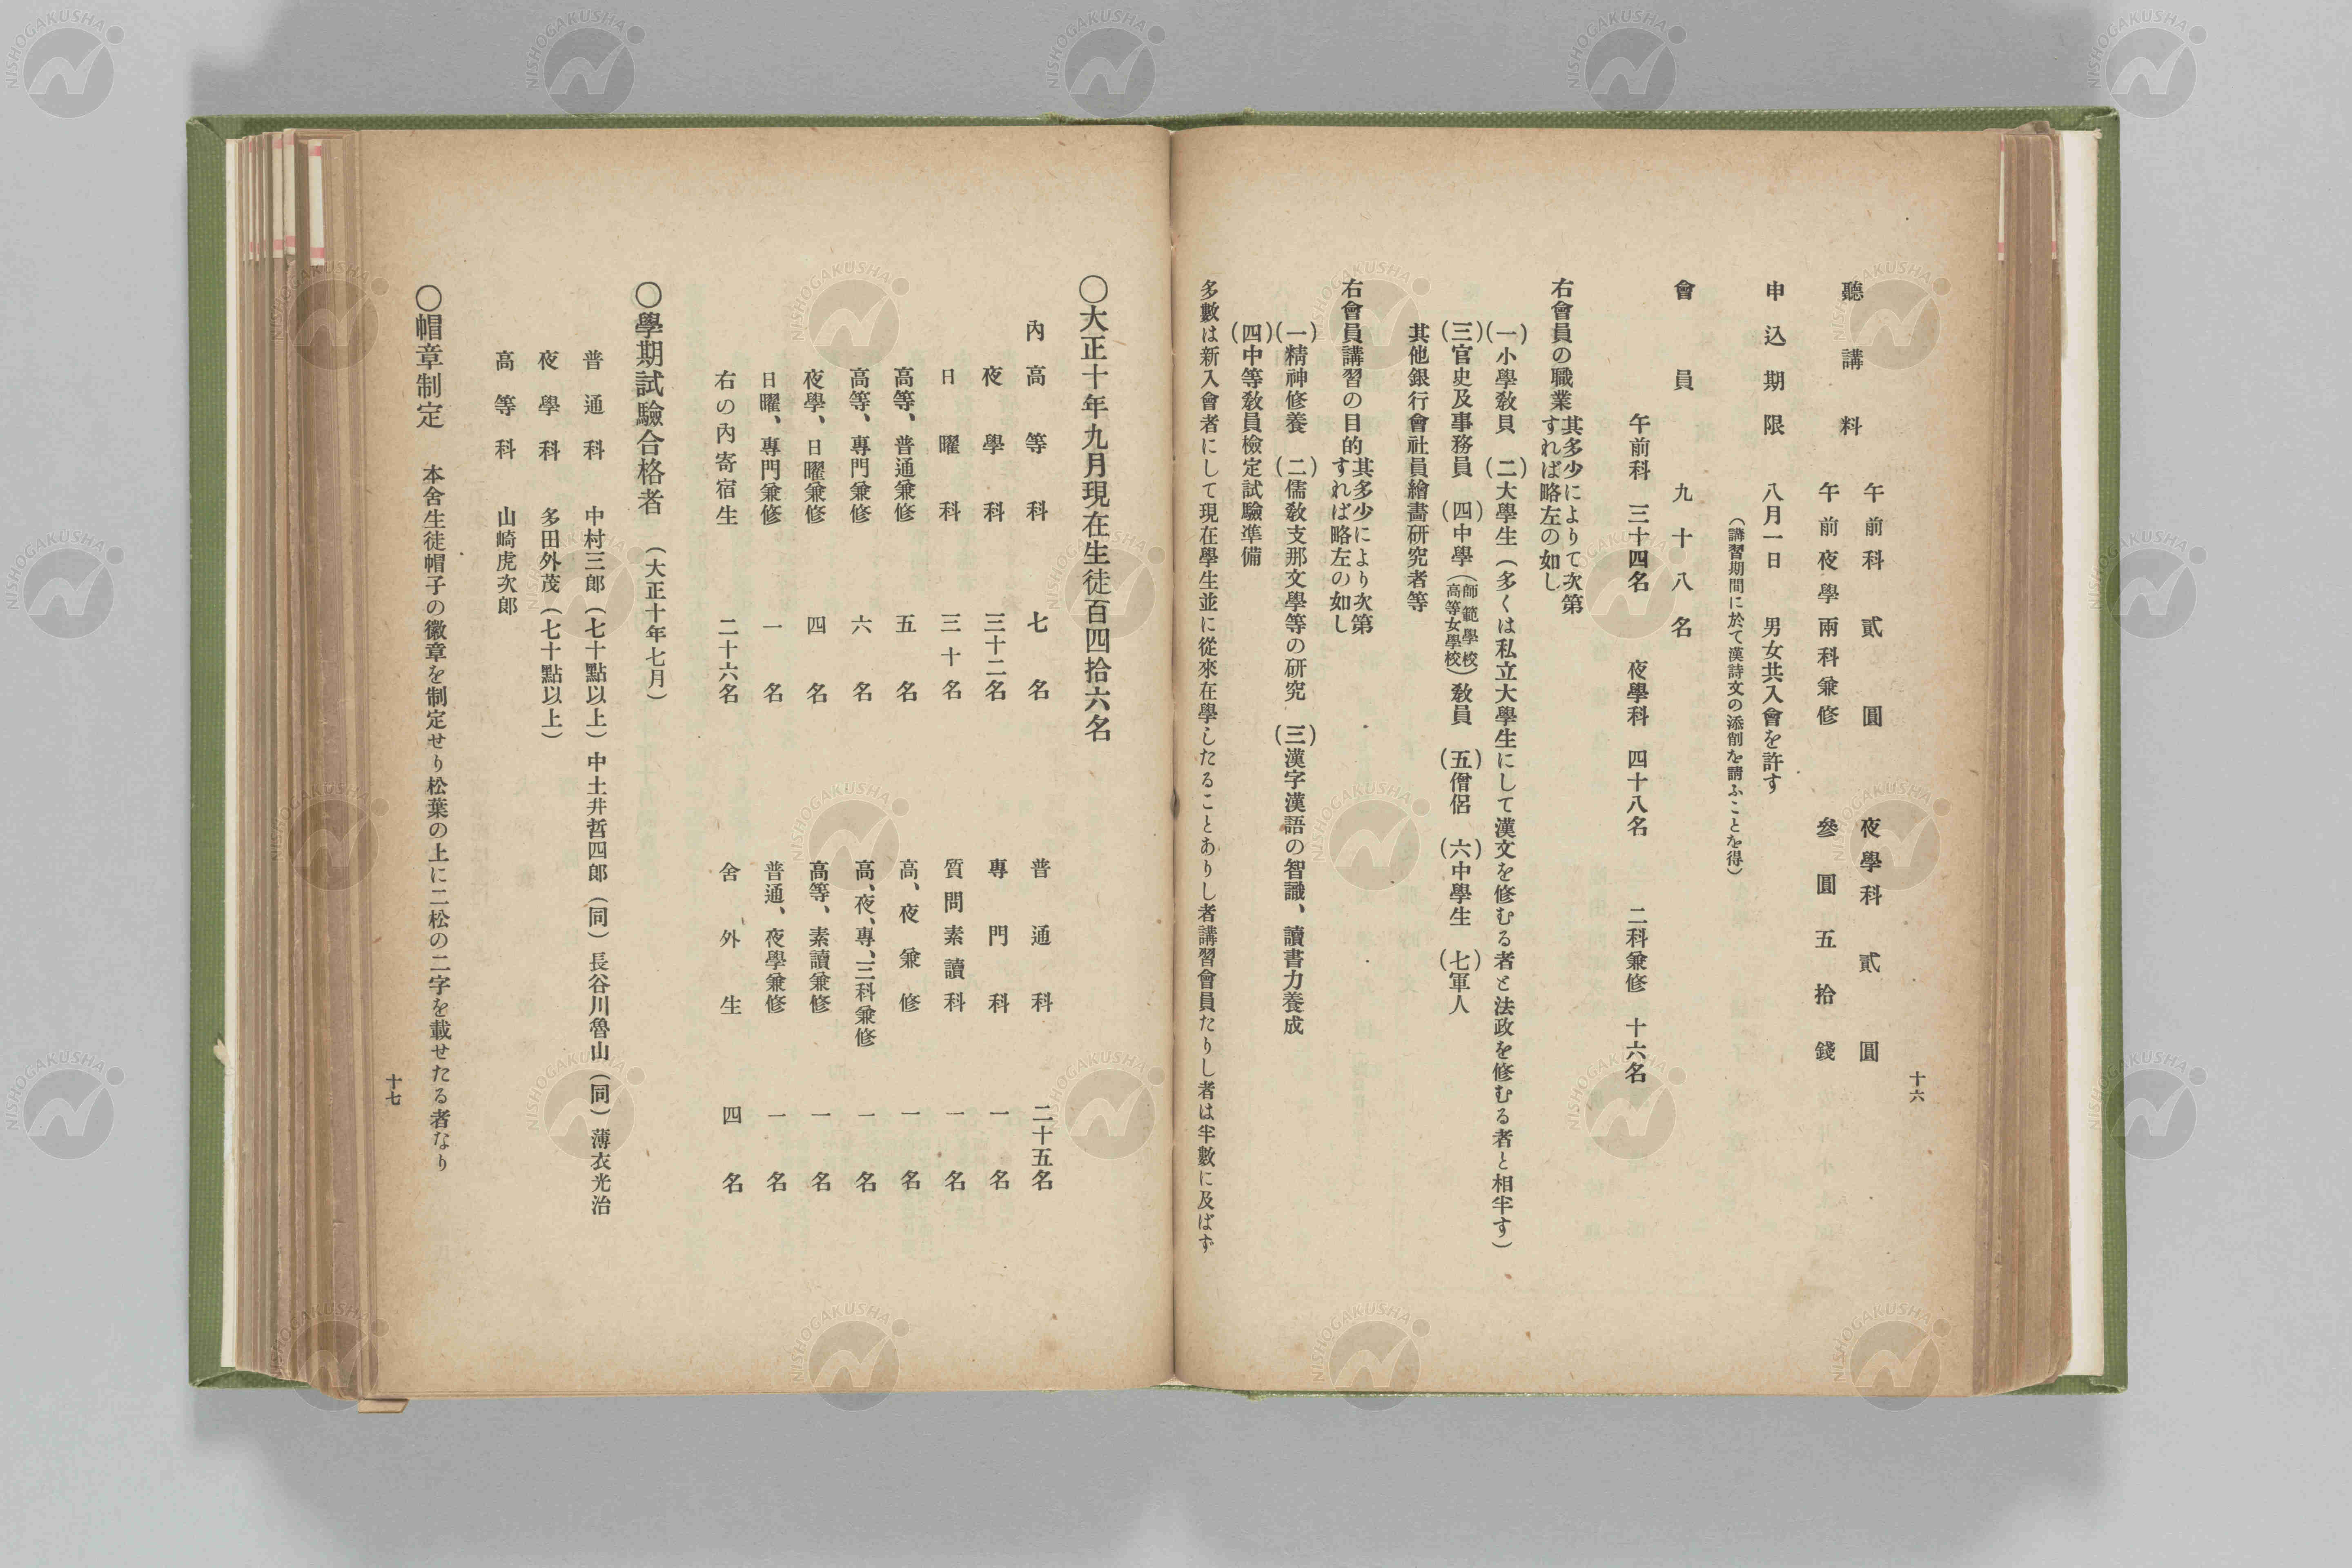 十六
聽講料
午前科 貳圓 夜學科 貳圓
午前夜學兩科兼修 參圓五拾錢
申込期限 八月一日 男女共入會を許す
（講習期間に於て漢詩文の添削を請ふことを得）
會員 九十八名
午前科 三十四名 夜學科 四十八名 二科兼修 十六名
右會員の職業 其多少によりて次第すれば略左の如し
(一)小學敎員 (二)大學生（多くは私立大學生にして漢文を修むる者と法政を修むる者と相半す）
(三)官吏及事務員 (四)中學（師範學校高等女學校）敎員 (五)僧侶 (六)中學生 (七)軍人
其他銀行會社員繪畵硏究者等
右會員講習の目的 其多少により次第すれば略左の如し
(一)精神修養 (二)儒敎支那文學等の硏究 (三)漢字漢語の智識、讀書力養成
(四)中等敎員檢定試驗準備
多數は新入會者にして現在學生並に從來在學したることありし者講習會員たりし者は半數に及ばず
〇大正十年九月現在生徒百四拾六名
內高等科 七名 普通科 二十五名
夜學科 三十二名 專門科 一名
日曜科 三十名 質問素讀科 一名
高等、普通兼修 五名 高、夜兼修 一名
高等、專門兼修 六名 高、夜、專、三科兼修 一名
夜學、日曜兼修 四名 高等、素讀兼修 一名
日曜、專門兼修 一名 普通、夜學兼修 一名
右の內寄宿生 二十六名 舍外生 四名
〇學期試驗合格者 （大正十年七月）
普通科 中村三郎（七十點以上）中土井哲四郎（同）長谷川魯山（同）薄衣光治
夜學科 多田外茂（七十點以上）
高等科 山崎虎次郎
〇帽章制定 本舍生徒帽子の徽章を制定せり松葉の上に二松の二字を載せたる者なり
十七
NISHOGAKUSHA